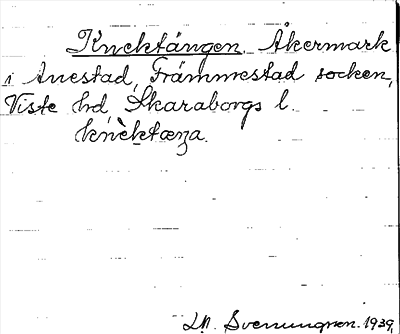 Knektängen Åkermark
i Anestad, Främmestad socken,
Viste hrd Skaraborgs l.
knèktæŋa.
Svenungsson. 1939.